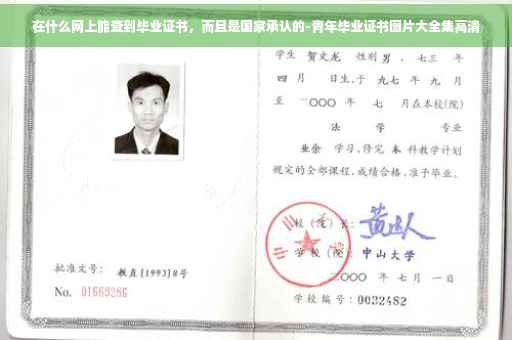 在什么网上能查到毕业证书，而且是国家承认的-青年毕业证书图片大全集高清
学生 贺文龙 性别 男 ，七三 年
四 月 日生，于 九七 年 九 月
至 二〇〇〇 年 七 月在本校(院)
法 学 专业
业余 学习，修完 本 科教学计划
规定的全部课程，成绩合格，准予毕业。
校 (院) 长：
学 校 (院)： 中山大学
二〇〇〇 年 七 月 一 日
学校编号：0032482
批准文号： 教直[1993]8号
No. 01669286